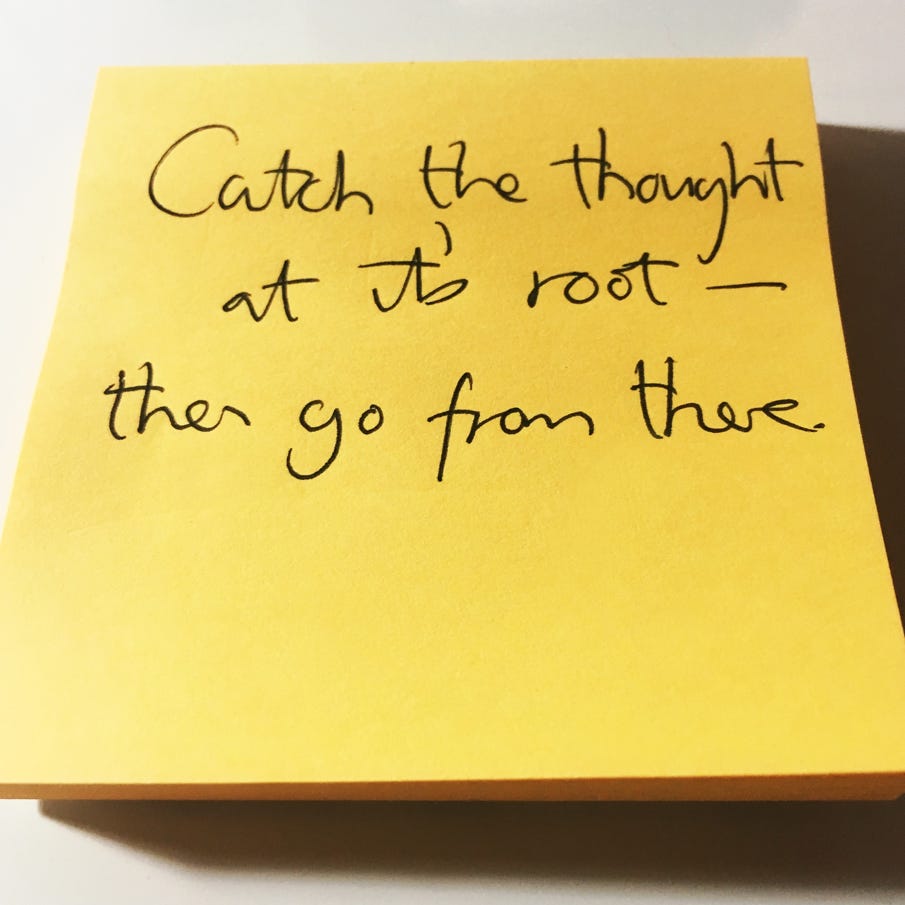 Catch the thought
at it's root —
then go from there.